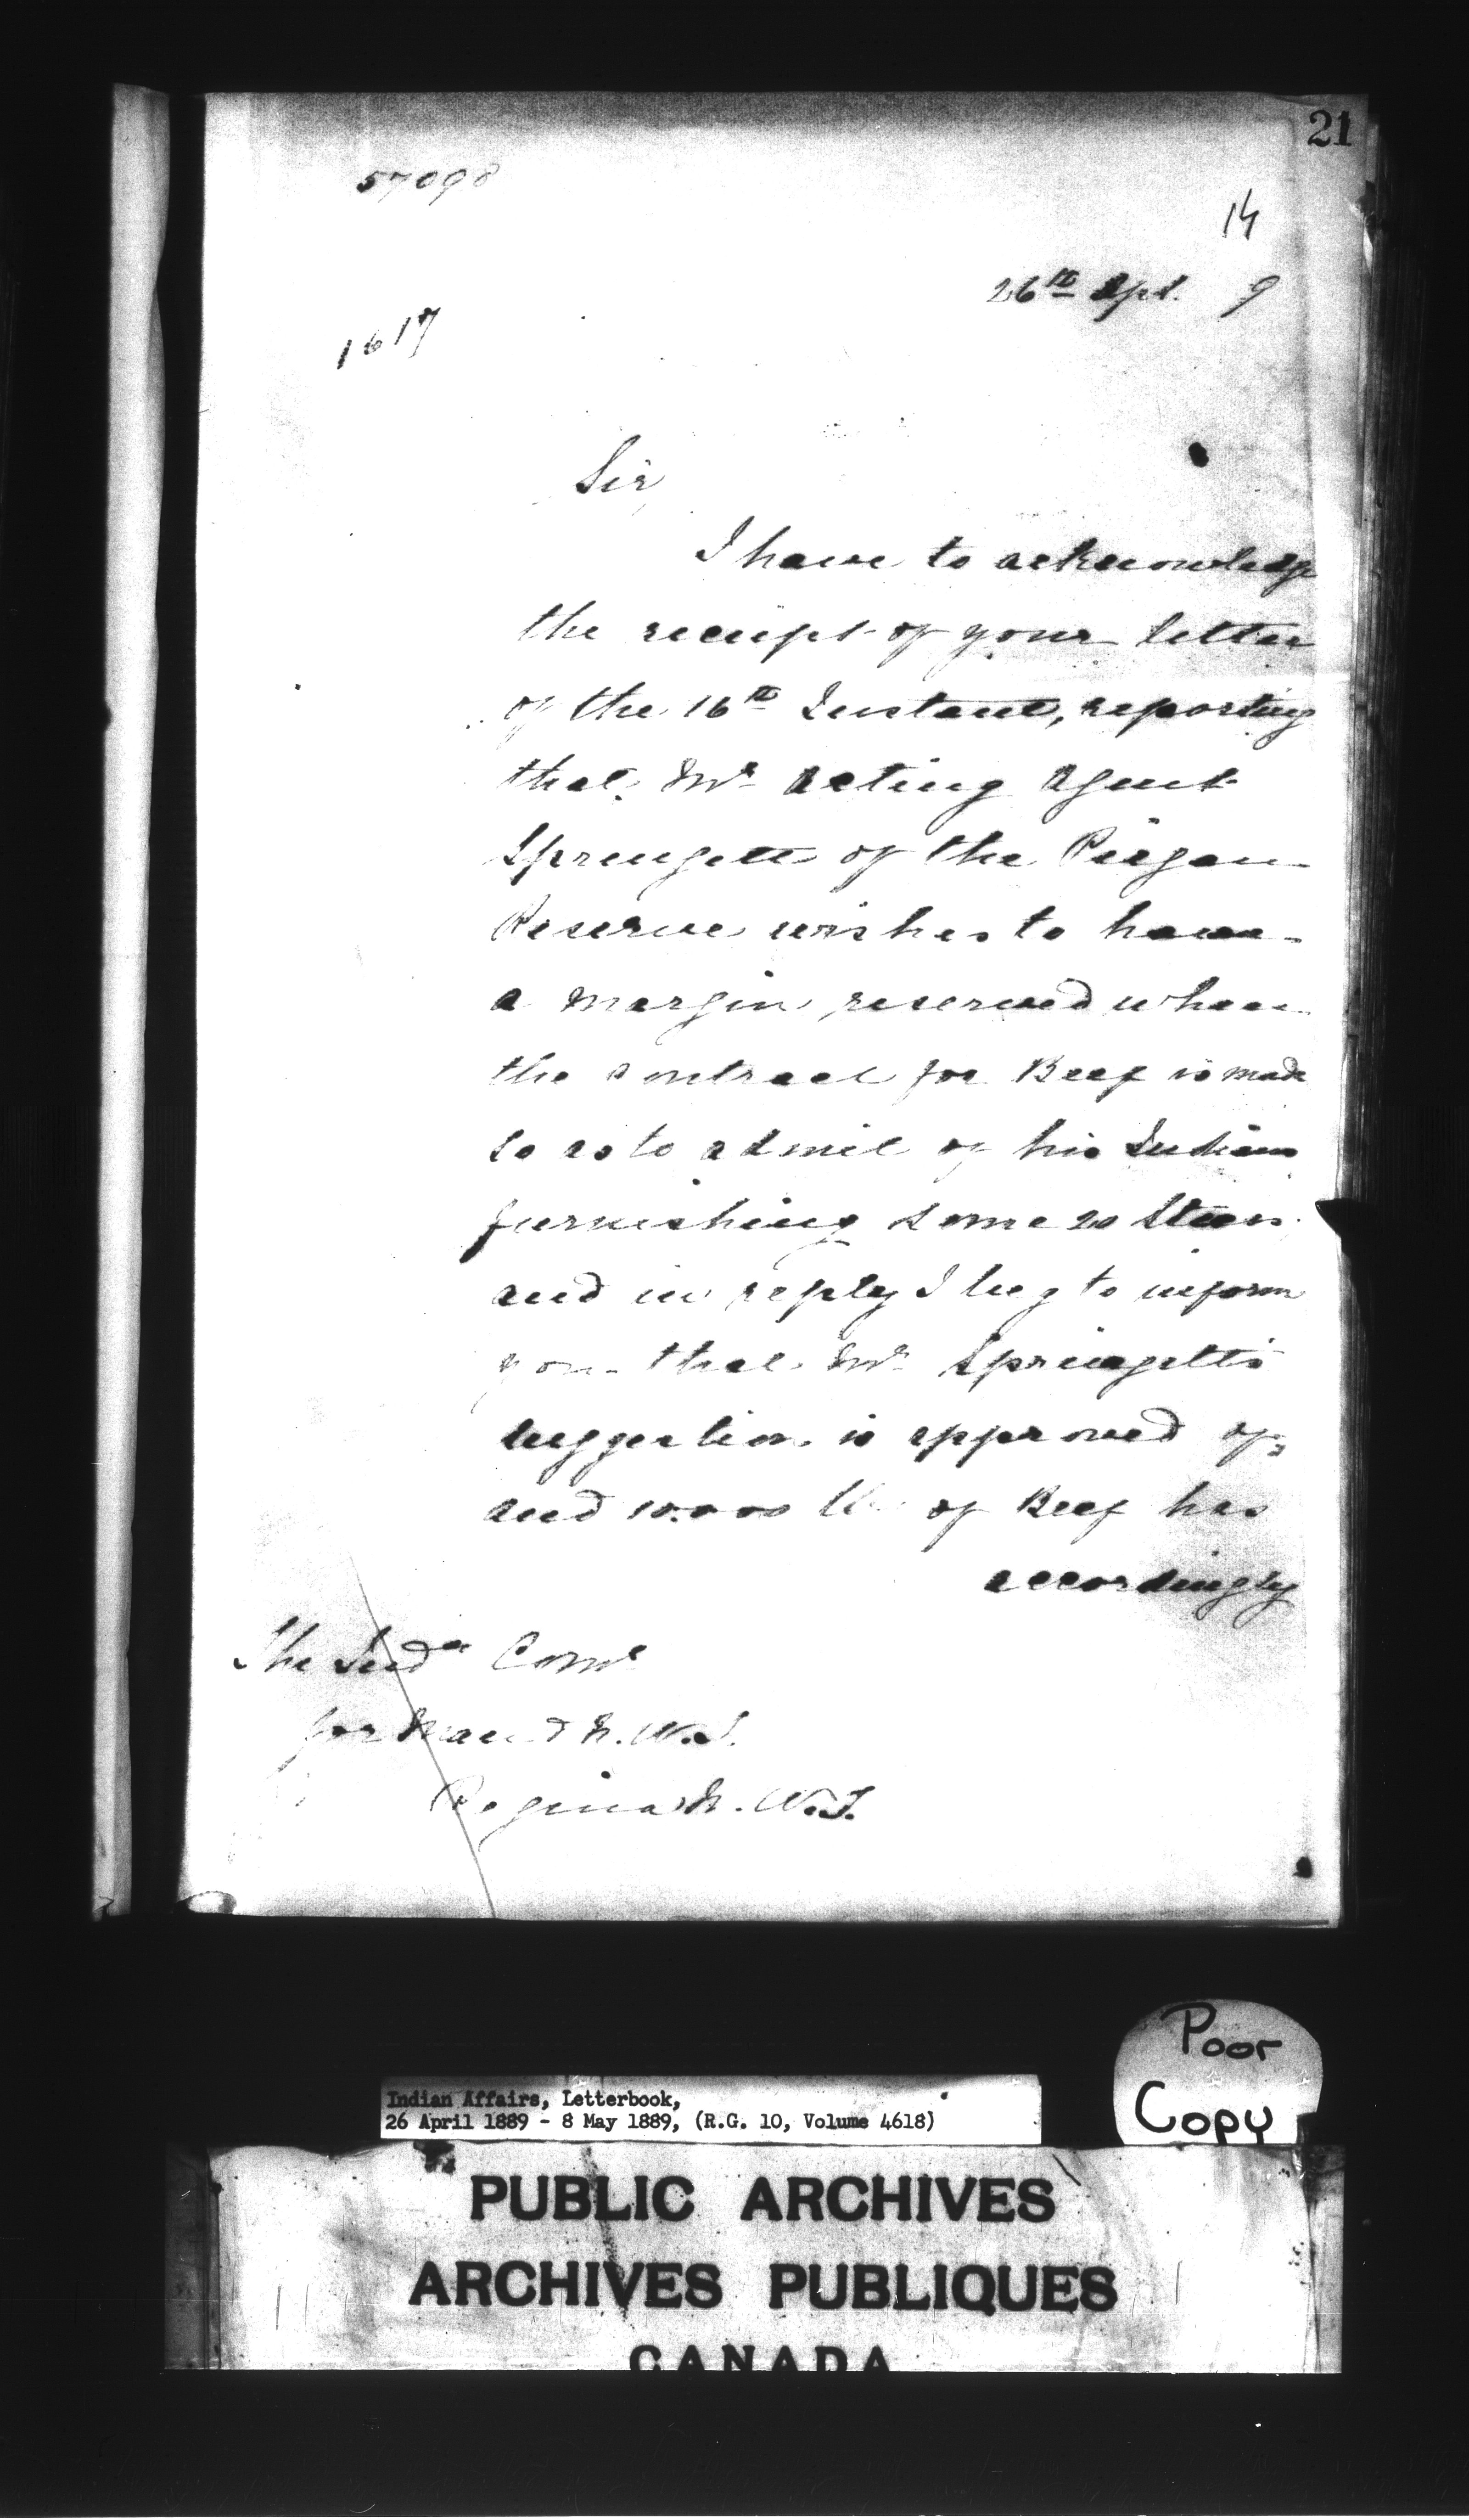 21
57098
14
26th Apl. 9
1617
Sir,
I have to acknowledge
the receipt of your letter
of the 16th Instant, reporting
that Mr Acting Agent
Springett of the Piegan
Reserve wishes to have
a margin reserved when
the contract for Beef is made
so as to admit of his Indians
furnishing some 20 Steers
and in reply I beg to inform
you that Mr Springett's
suggestion is approved of,
and 10.000 lbs of Beef has
accordingly
The Indn Comr
for Man &  N.W.T.
Regina N.W.T.
Poor
Copy
Indian Affairs, Letterbook,
26 April 1889 - 8 May 1889, (R.G. 10, Volume 4618)
PUBLIC ARCHIVES
ARCHIVES PUBLIQUES
CANADA